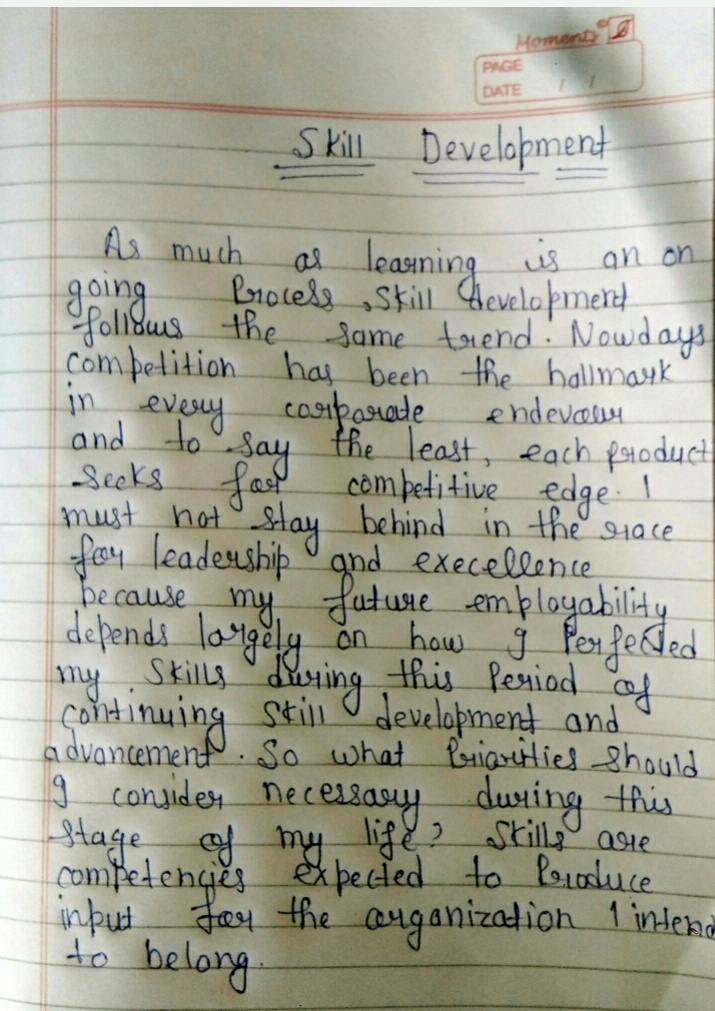 Moments
PAGE
DATE / /
Skill Development
As much as learning is an on
going Process, Skill development
follows the same trend. Nowdays
competition has been the hallmark
in every corporate endevour
and to say the least, each product
seeks for competitive edge. I
must not stay behind in the race
for leadership and execellence
because my future employability
depends largely on how I Perfected
my skills during this Period of
continuing skill development and
advancement. So what Priorities should
I consider necessary during this
stage of my life? Skills are
competencies expected to Produce
input for the organization I intend
to belong.